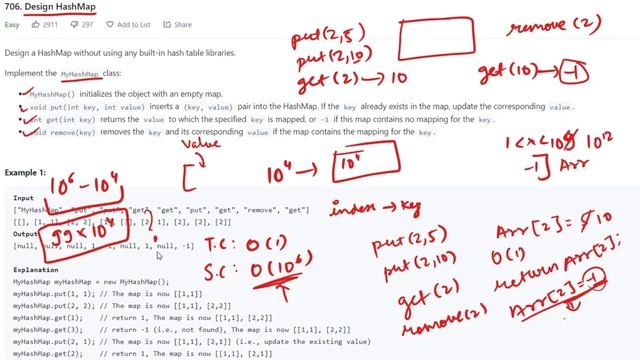 706. Design HashMap
Easy 2911 297 Add to List Share
Design a HashMap without using any built-in hash table libraries.
Implement the MyHashMap class:
MyHashMap() initializes the object with an empty map.
void put(int key, int value) inserts a (key, value) pair into the HashMap. If the key already exists in the map, update the corresponding value.
int get(int key) returns the value to which the specified key is mapped, or -1 if this map contains no mapping for the key.
void remove(key) removes the key and its corresponding value if the map contains the mapping for the key.
put(2,5)
put(2,10)
get(2) → 10
remove(2)
get(10) → -1
value
10^4 → 10^4
index → key
-1] Arr
10^6 - 10^4
99 x 10^4
?
T.C: O(1)
S.C: O(10^6)
put(2,5)
put(2,10)
get(2)
remove(2)
Arr[2] = 5 10
O(1)
return Arr[2];
Arr[2] = -1
Example 1:
Input
Output
Explanation
MyHashMap myHashMap = new MyHashMap();
myHashMap.put(1, 1); // The map is now [[1,1]]
myHashMap.put(2, 2); // The map is now [[1,1], [2,2]]
myHashMap.get(1); // return 1, The map is now [[1,1], [2,2]]
myHashMap.get(3); // return -1 (i.e., not found), The map is now [[1,1], [2,2]]
myHashMap.put(2, 1); // The map is now [[1,1], [2,1]] (i.e., update the existing value)
myHashMap.get(2); // return 1, The map is now [[1,1], [2,1]]